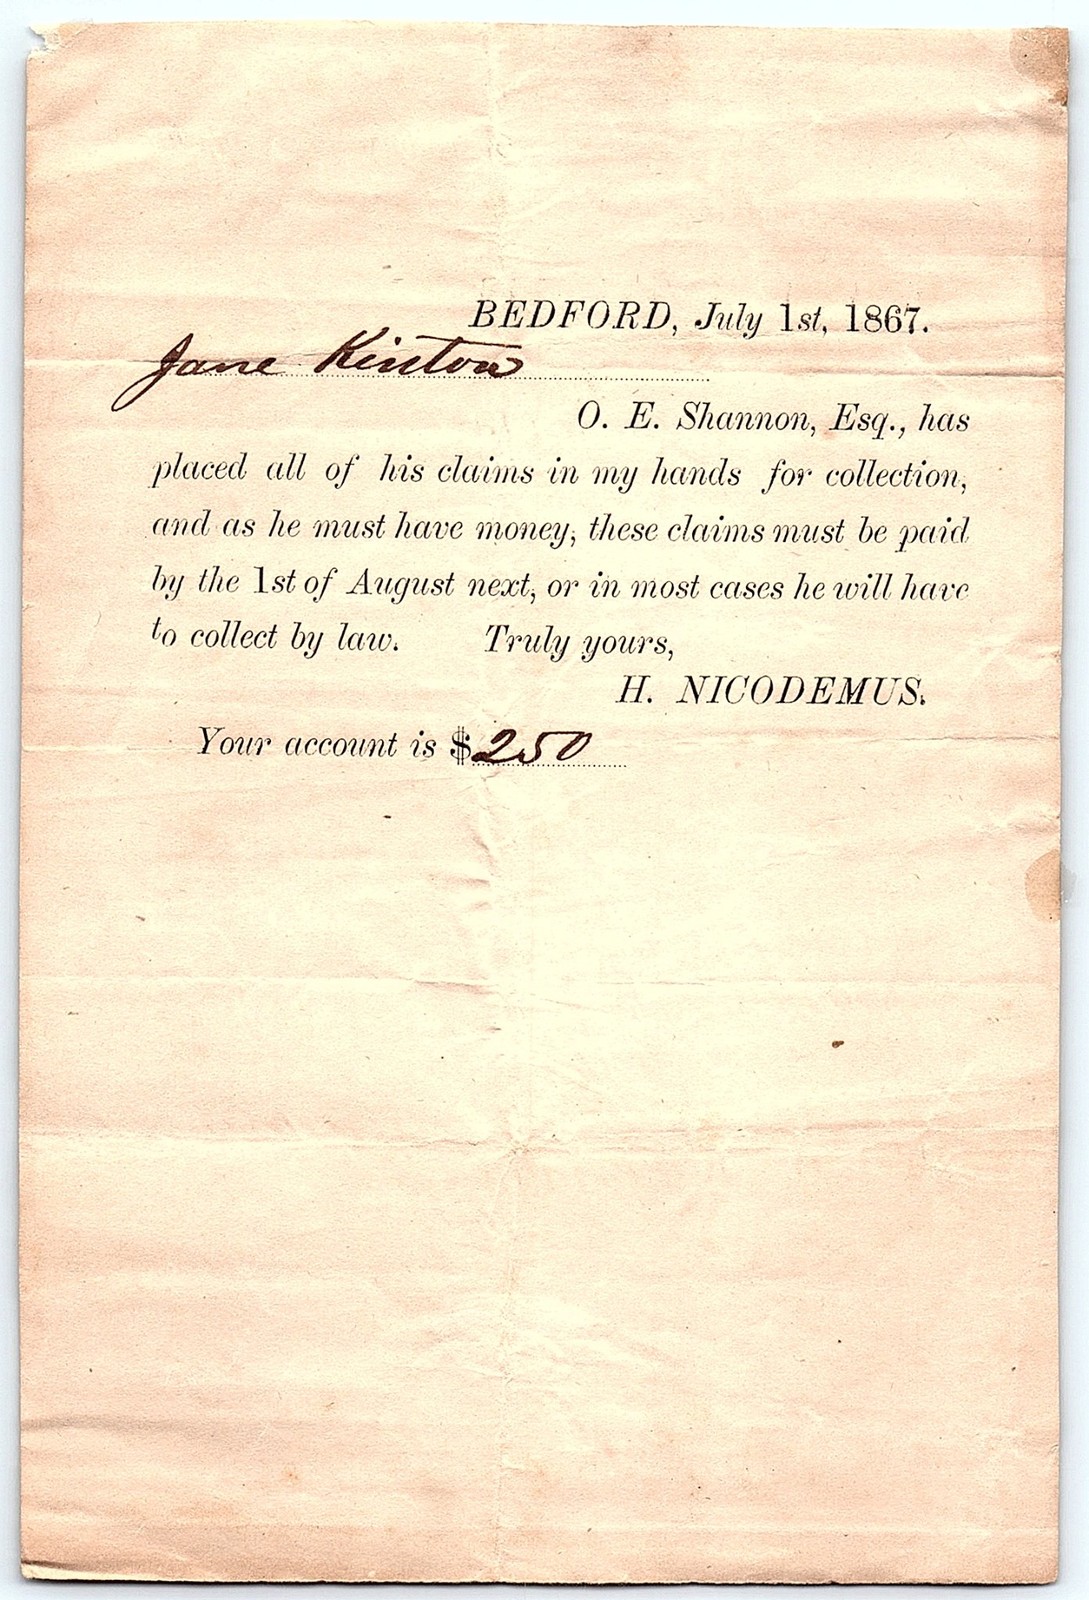 BEDFORD, July 1st, 1867.
Jane Kinton
O. E. Shannon, Esq., has
placed all of his claims in my hands for collection,
and as he must have money, these claims must be paid
by the 1st of August next, or in most cases he will have
to collect by law. Truly yours,
H. NICODEMUS.
Your account is $250